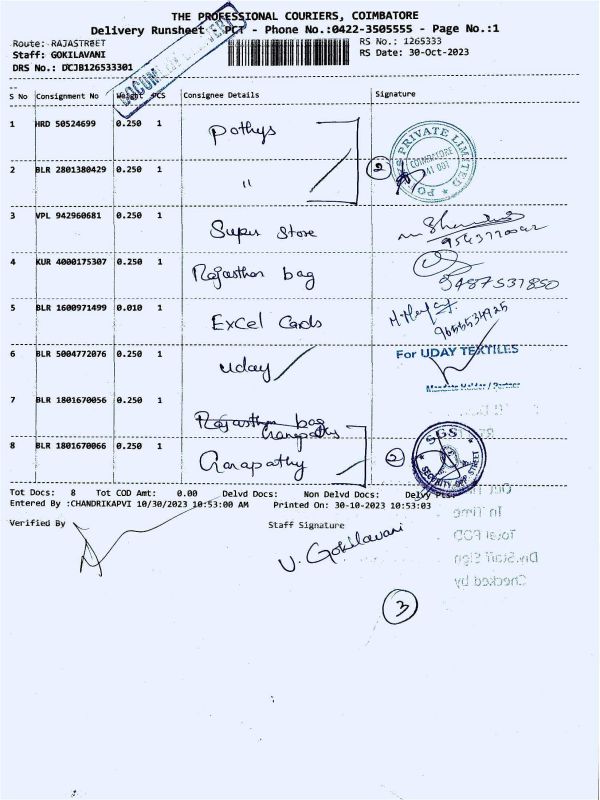 THE PROFESSIONAL COURIERS, COIMBATORE
Delivery Runsheet - PCT - Phone No.:0422-3505555 - Page No.:1
Route: RAJASTREET
RS No.: 1265333
Staff: GOKILAVANI
RS Date: 30-Oct-2023
DRS No.: DCJB126533301
S No Consignment No Weight PCS Consignee Details Signature
1 HRD 50524699 0.250 1 Pothys
PRIVATE LIMITED
COIMBATORE
2 BLR 2801380429 0.250 1 " 2
3 VPL 942960681 0.250 1 Super Store
4 KUR 4000175307 0.250 1 Rajasthan bag 9487537850
5 BLR 1600971499 0.010 1 Excel Cards 9655534925
6 BLR 5004772076 0.250 1 uday For UDAY TEXTILES
7 BLR 1801670056 0.250 1 Rajasthan bag
Ganapathy
SGS
8 BLR 1801670066 0.250 1 Ganapathy 2
Tot Docs: 8 Tot COD Amt: 0.00 Delvd Docs: Non Delvd Docs: Delvy PCS:
Entered By :CHANDRIKAPVI 10/30/2023 10:53:00 AM Printed On: 30-10-2023 10:53:03
In Time
Verified By Staff Signature
Total POD
V. Gokilavani
Div.Staff Sign
Checked by
3